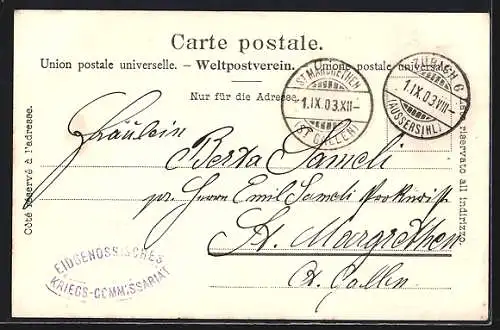 Carte postale.
Union postale universelle. – Weltpostverein. – Unione postale universale.
Nur für die Adresse.
ST. MARGRETHEN
1.IX.03.XII–
(ST. GALLEN)
ZÜRICH 6
1.IX.03.VIII–
(AUSSERSIHL)
Côté réservé à l'adresse.
Lato riservato all indirizzo.
Fräulein
Berta Sameli
pr. Herrn Emil Sameli
St. Margrethen
Ct. Gallen
EIDGENÖSSISCHES
KRIEGS-COMMISSARIAT